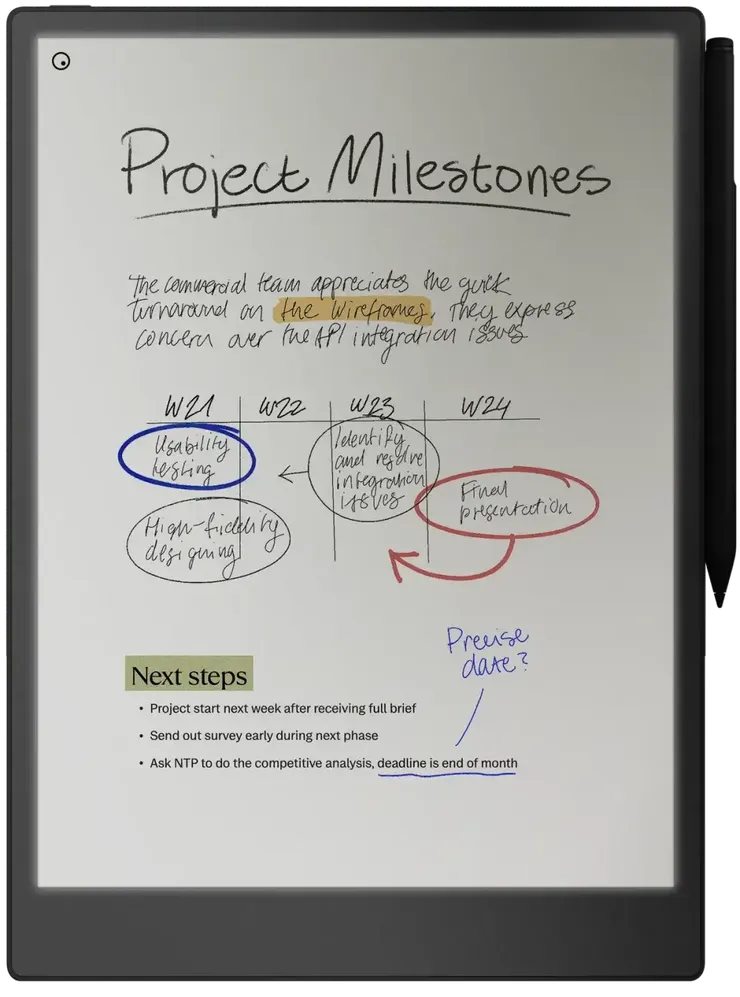 Project Milestones
The commercial team appreciates the quick
turnaround on the wireframes. They express
concern over the API integration issues
W21 W22 W23 W24
Usability
testing
High-fidelity
designing
Identify
and resolve
integration
issues
Final
presentation
Precise
date?
Next steps
• Project start next week after receiving full brief
• Send out survey early during next phase
• Ask NTP to do the competitive analysis, deadline is end of month